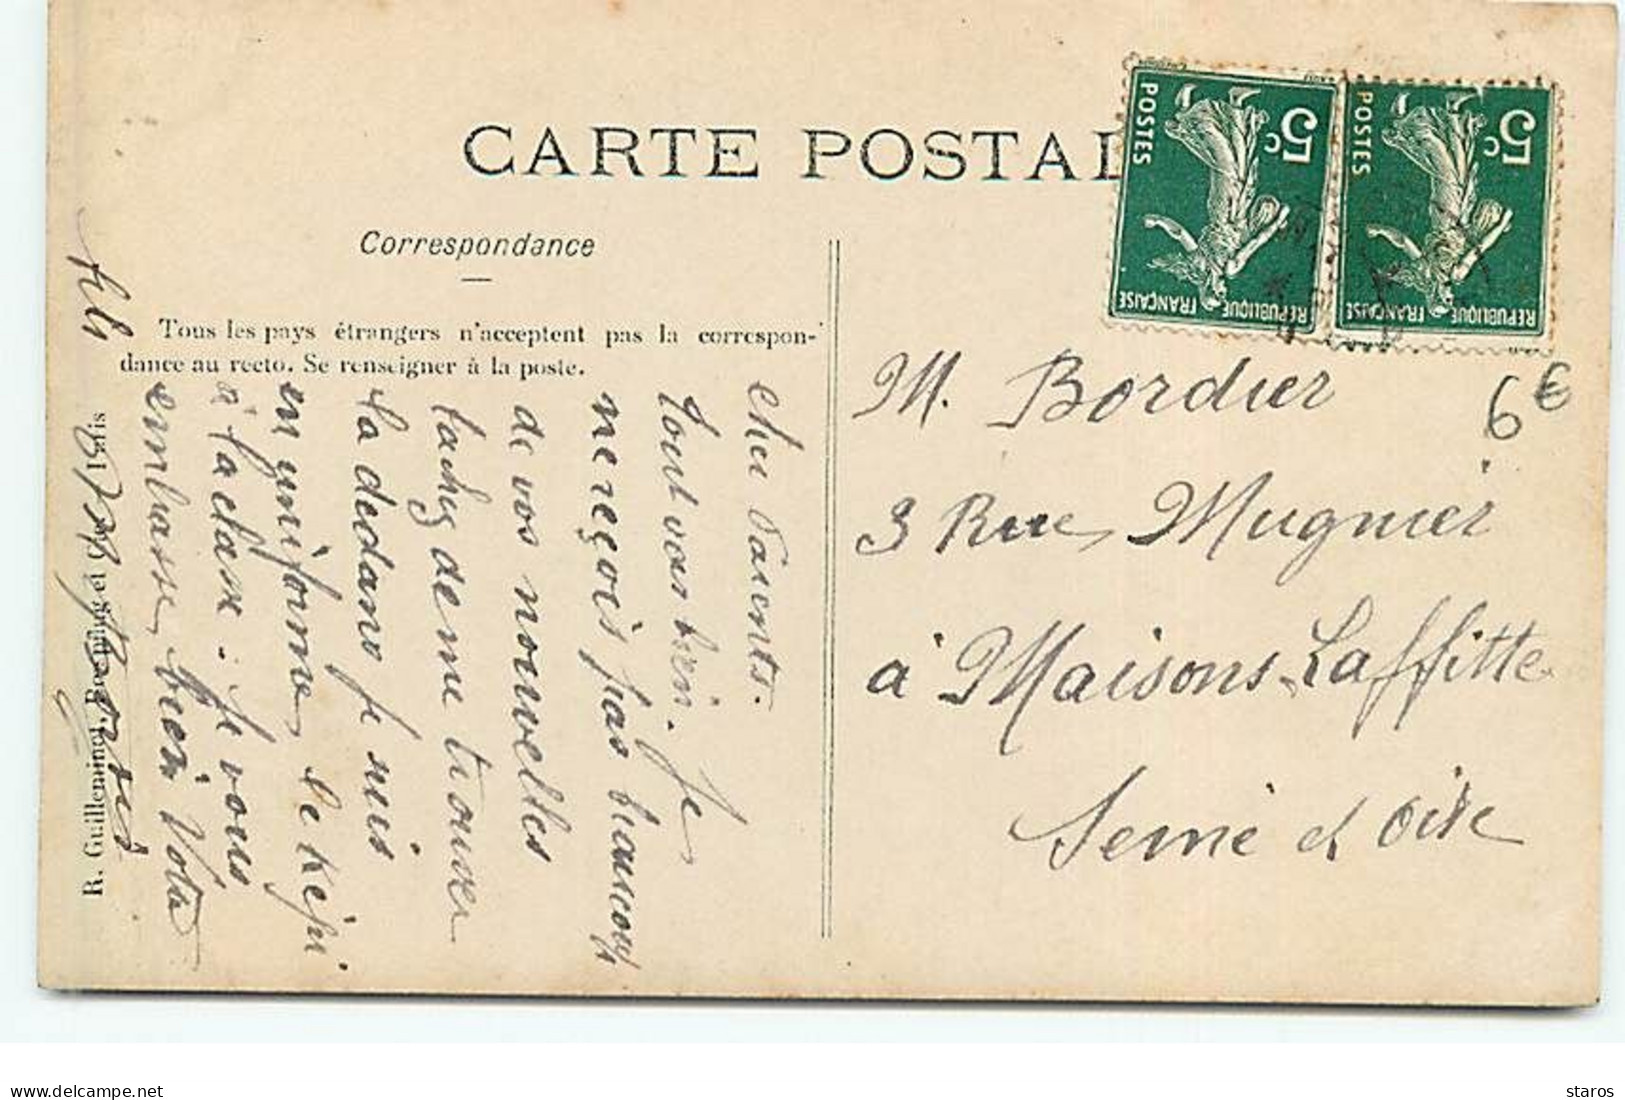 CARTE POSTAL
Correspondance
Tous les pays étrangers n'acceptent pas la correspon-
dance au recto. Se renseigner à la poste.
POSTES
5c
REPUBLIQUE FRANÇAISE
POSTES
5c
REPUBLIQUE FRANÇAISE
M. Bordier
3 Rue Mugnier
à Maisons-Laffitte
Seine et Oise
6€
Cher Parents.
tout vas bien. Je
ne reçois pas beaucoup
de vos nouvelles
tachez de me trouver
la dedans je suis
en uniforme, le Képi
à la classe. Je vous
embrasse, bien Votre
fils
R. Guilleminot, Bœspflug et Cie Paris
delcampe.net
staros